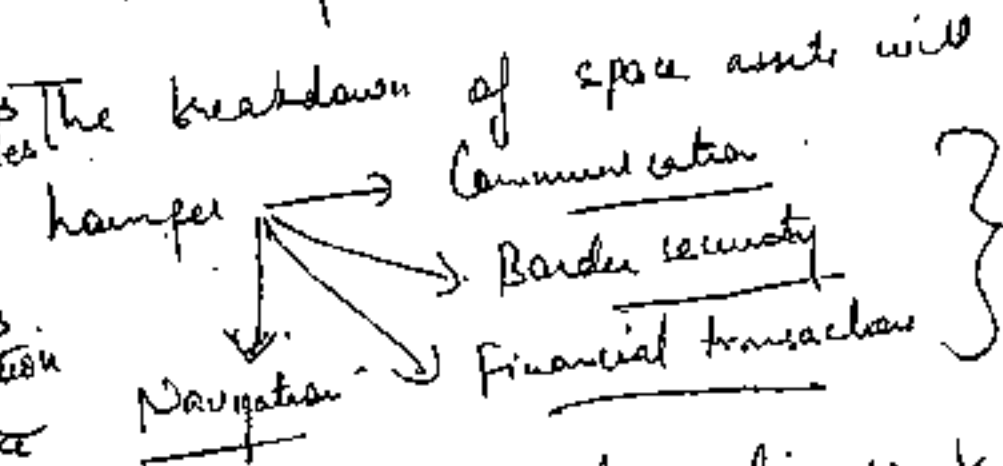 The breakdown of space assets will
hamper
Communication
Border security
Financial transactions
Navigation